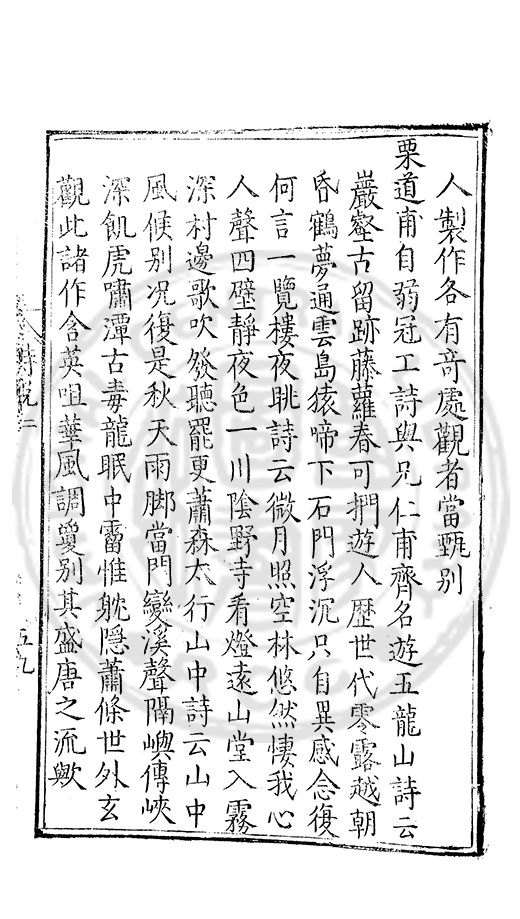 人製作各有竒處觀者當甄别
栗道甫自弱冠工詩與兄仁甫齊名遊五龍山詩云
巖壑古留跡藤蘿春可捫遊人歷世代零露越朝
昏鶴夢通雲島猿啼下石門浮沉只自異感念復
何言一覽樓夜眺詩云微月照空林悠然悽我心
人聲四壁靜夜色一川陰野寺看燈遠山堂入霧
深村邊歌吹發聽罷更蕭森太行山中詩云山中
風候别况復是秋天雨脚當門變溪聲隔嶼傳峽
深飢虎嘯潭古毒龍眠中霤惟躭隱蕭條世外玄
觀此諸作含英咀華風調敻别其盛唐之流歟